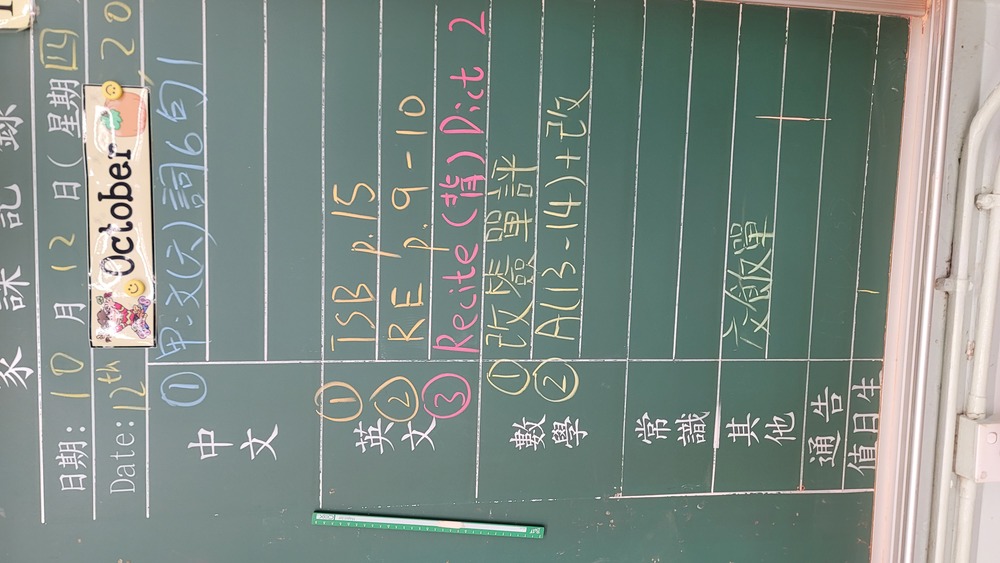 家課記錄
日期: 10月12日(星期四
Date: 12th October, 20
中文 ① 甲:文(六)詞6句1
英文 ① TSB p.15
② RE p.9-10
③ Recite (背) Dict 2
數學 ①改 單評
② A(13-14)+改
常識
其他 交 單
通告
值日生